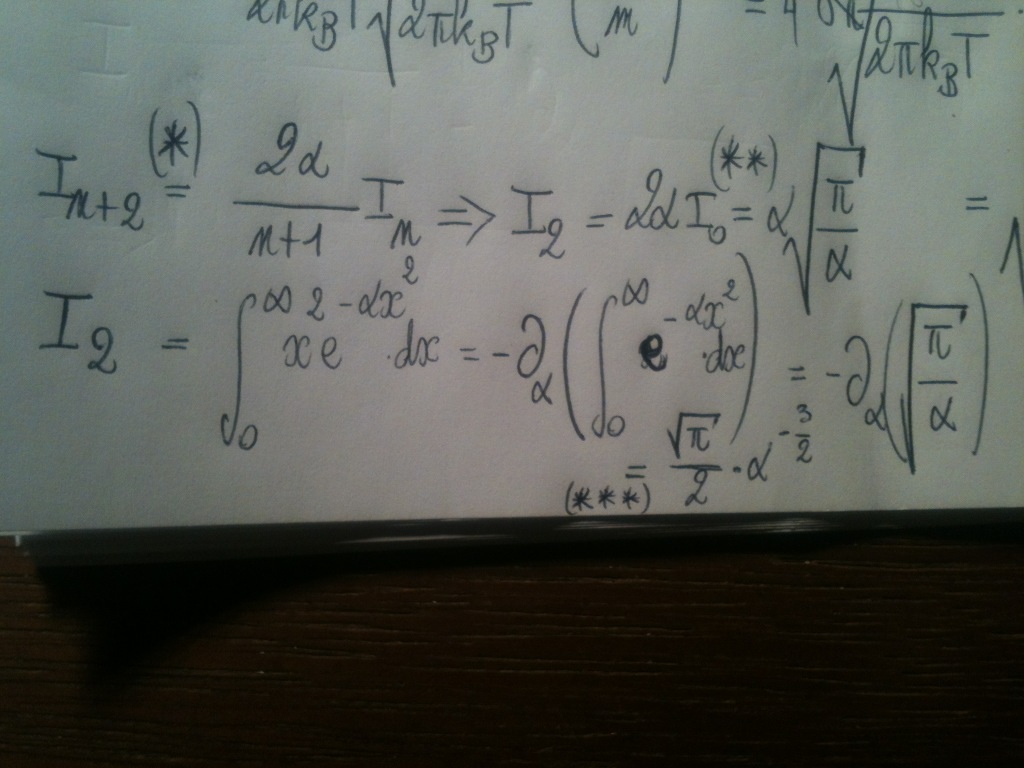 2πk_BT √2πk_BT (m) = 4 √2πk_BT
I_{n+2} (*)= 2α/(n+1) I_n => I_2 = 2αI_0 (**)= α√(π/α) = √
I_2 = ∫_0^∞ x^2 e^{-αx^2} · dx = -∂_α (∫_0^∞ e^{-αx^2} · dx) = -∂_α(√(π/α))
(***)= √π/2 · α^{-3/2}